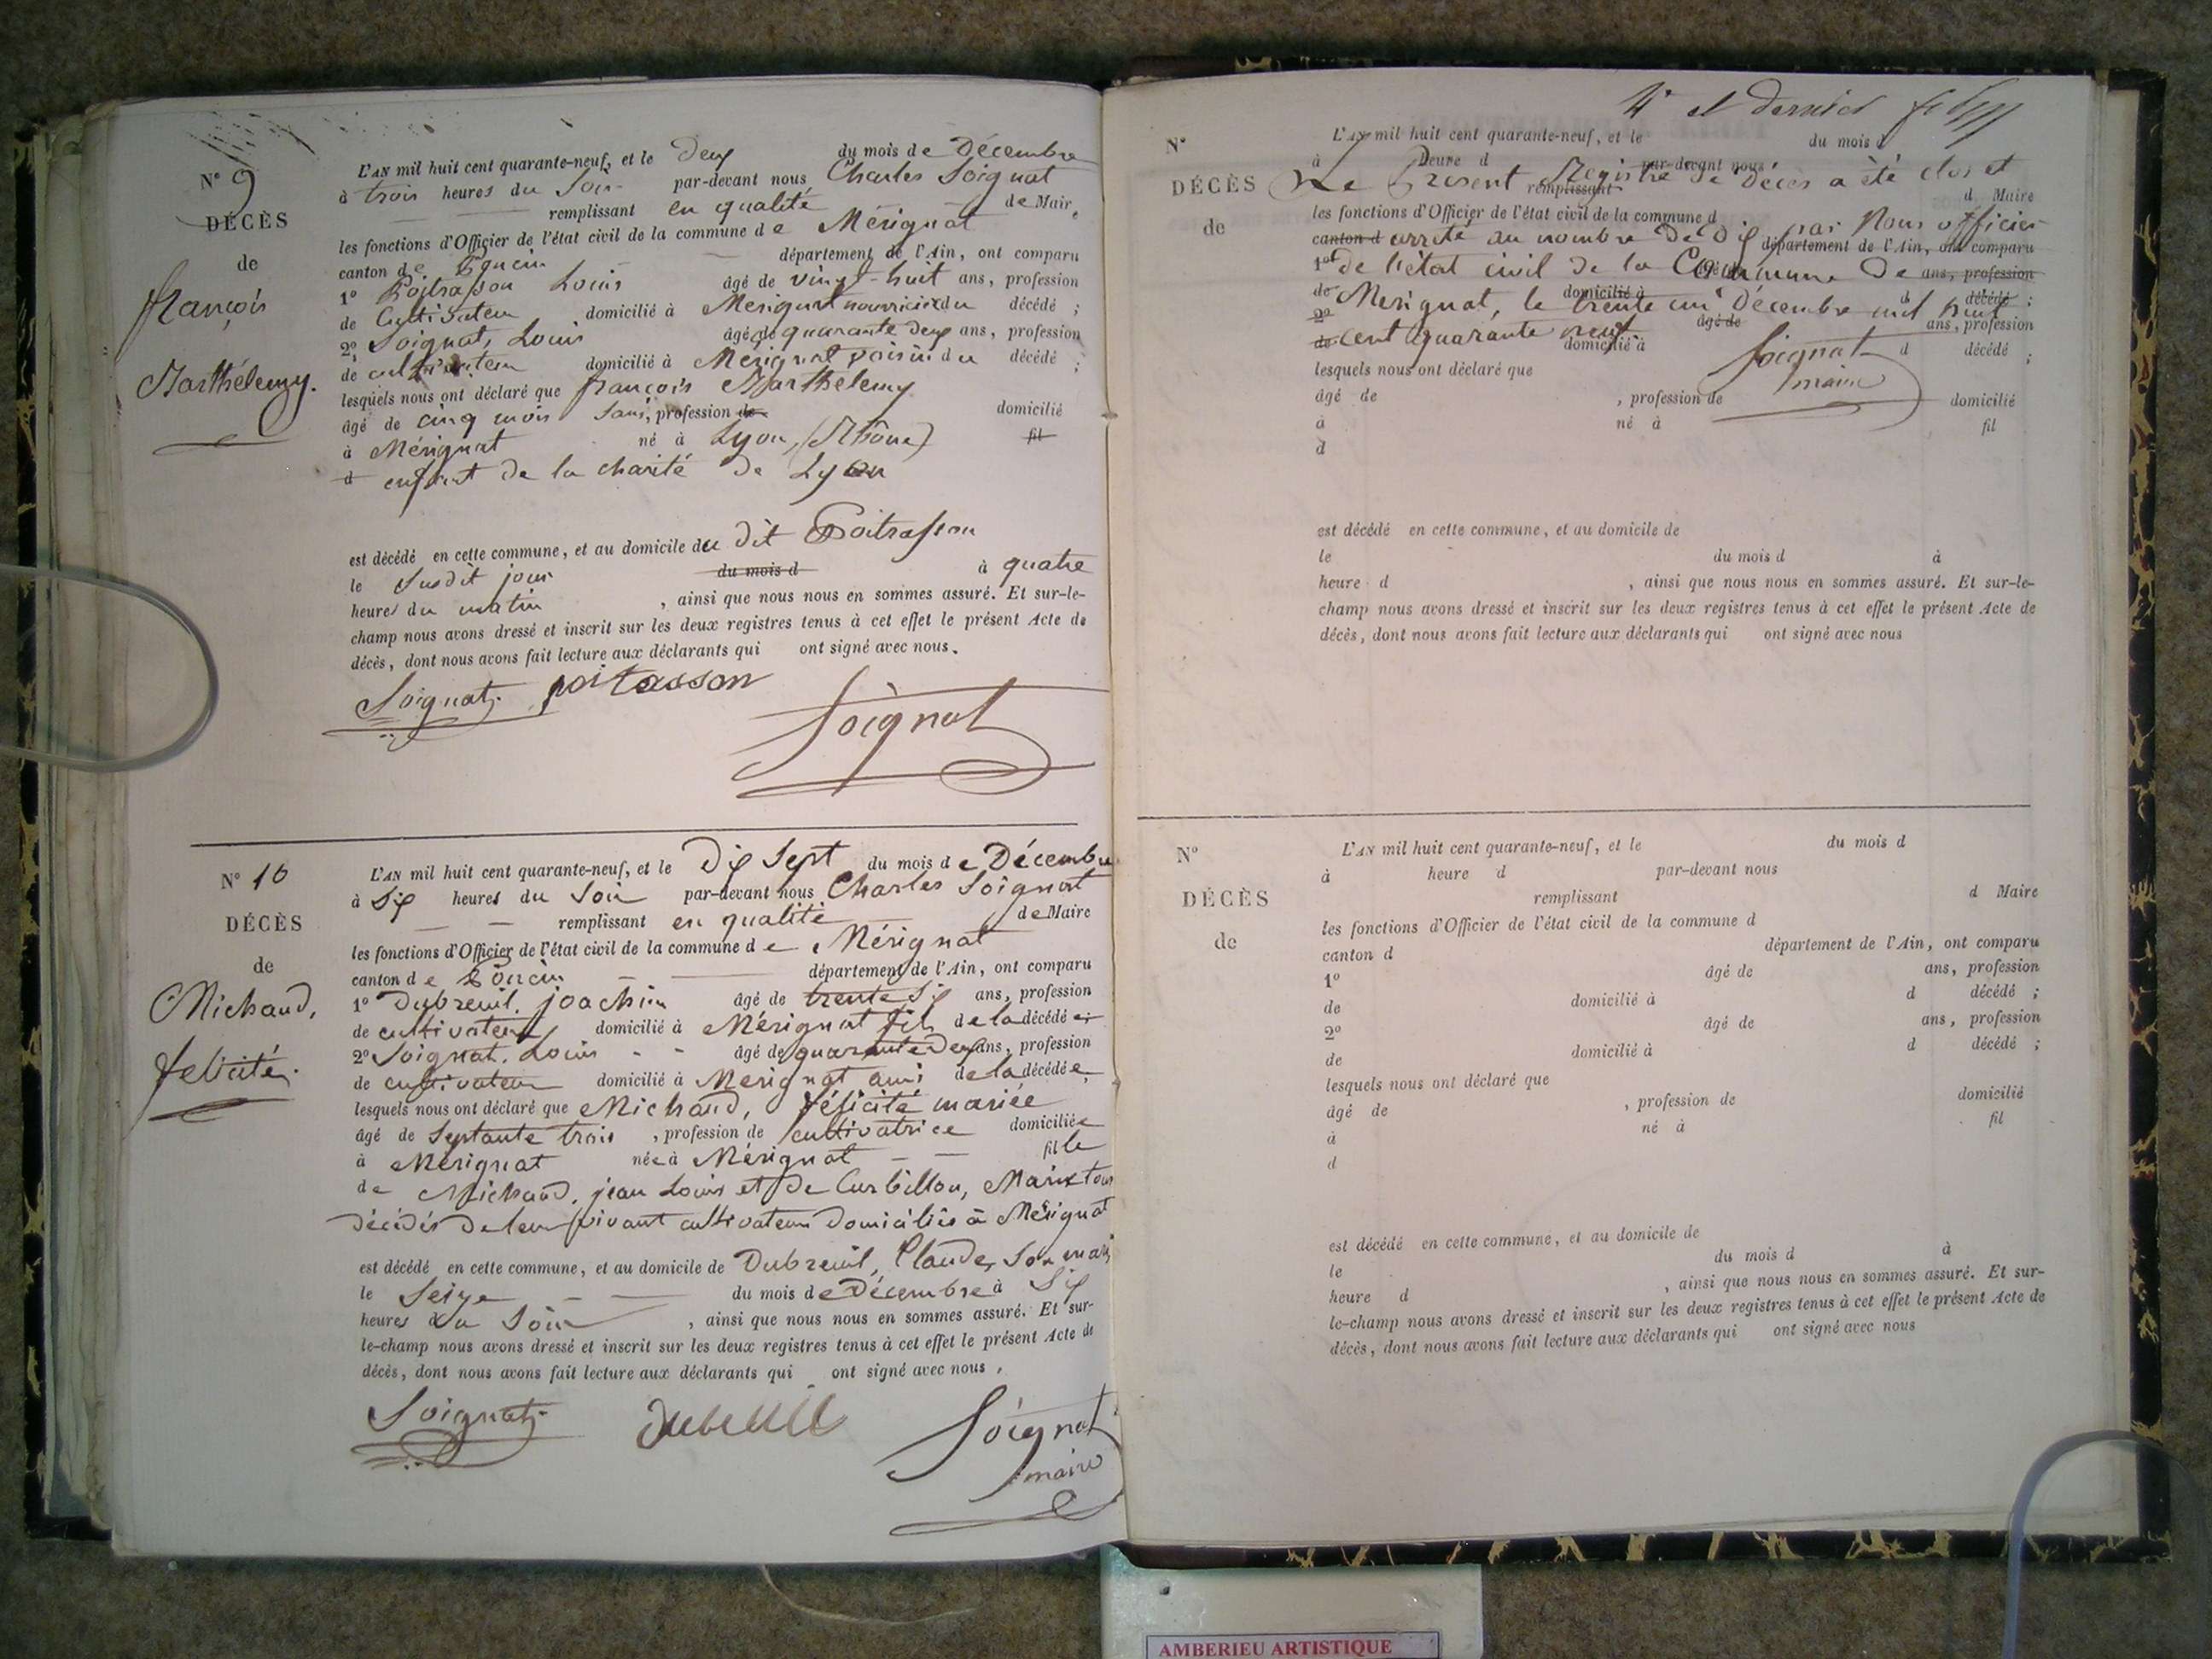 N° 9
DÉCÈS
de
françois
Barthélemy.
L'AN mil huit cent quarante-neuf, et le deux du mois de Décembre
à trois heures du Soir par-devant nous Charles Soignat
remplissant en qualité de Maire
les fonctions d'Officier de l'état civil de la commune de Mérignat
canton de Poncin département de l'Ain, ont comparu
1° Poitrasson Louis âgé de vingt-huit ans, profession
de Cultivateur domicilié à Mérignat nourricier du décédé ;
2° Soignat, Louis âgé de quarante deux ans, profession
de cultivateur domicilié à Mérignat voisin du décédé ;
lesquels nous ont déclaré que françois Barthélemy
âgé de cinq mois Sans, profession de domicilié
à Mérignat né à Lyon, (Rhône) fil
d enfant de la charité de Lyon
est décédé en cette commune, et au domicile du dit Poitrasson
le Susdit jour du mois d à quatre
heures du matin , ainsi que nous nous en sommes assuré. Et sur-le-
champ nous avons dressé et inscrit sur les deux registres tenus à cet effet le présent Acte de
décès, dont nous avons fait lecture aux déclarants qui ont signé avec nous.
Soignat poitasson
Soignat
N° 10
DÉCÈS
de
Michaud,
félicité.
L'AN mil huit cent quarante-neuf, et le Dix Sept du mois de Décembre
à Six heures du Soir par-devant nous Charles Soignat
remplissant en qualité de Maire
les fonctions d'Officier de l'état civil de la commune de Mérignat
canton de Poncin département de l'Ain, ont comparu
1° Dubreuil, joachim âgé de trente Six ans, profession
de cultivateur domicilié à Mérignat fils de la décédée
2° Soignat, Louis âgé de quarante Deux ans, profession
de cultivateur domicilié à Mérignat ami de la décédée
lesquels nous ont déclaré que Michaud, félicité mariée
âgé de Septante trois , profession de cultivatrice domiciliée
à Mérignat née à Mérignat fille
de Michaud, jean Louis et de Curbillon, Marie tous
décédés de leur vivant cultivateurs domiciliés à Mérignat
est décédé en cette commune, et au domicile de Dubreuil, Claude, Son mari
le Seize du mois de Décembre à Six
heures du Soir , ainsi que nous nous en sommes assuré. Et sur-
le-champ nous avons dressé et inscrit sur les deux registres tenus à cet effet le présent Acte de
décès, dont nous avons fait lecture aux déclarants qui ont signé avec nous.
Soignat
Soignat
maire
4e et dernier
N°
DÉCÈS
de
L'AN mil huit cent quarante-neuf, et le du mois d
à heure d par-devant nous
Le Présent Registre de Décès a été clos et
remplissant d Maire
les fonctions d'Officier de l'état civil de la commune d
canton d arrêté au nombre de dix par Nous officier
département de l'Ain, ont comparu
1° de l'état civil de la Commune de ans, profession
de Mérignat, le trente un Décembre mil huit
domicilié à d décédé ;
2° âgé de ans, profession
de cent quarante neuf domicilié à d décédé ;
Soignat
maire
lesquels nous ont déclaré que
âgé de , profession de domicilié
à né à fil
d
est décédé en cette commune, et au domicile de
le du mois d à
heure d , ainsi que nous nous en sommes assuré. Et sur-le-
champ nous avons dressé et inscrit sur les deux registres tenus à cet effet le présent Acte de
décès, dont nous avons fait lecture aux déclarants qui ont signé avec nous
N°
DÉCÈS
de
L'AN mil huit cent quarante-neuf, et le du mois d
à heure d par-devant nous
remplissant d Maire
les fonctions d'Officier de l'état civil de la commune d
canton d département de l'Ain, ont comparu
1° âgé de ans, profession
de domicilié à d décédé ;
2° âgé de ans, profession
de domicilié à d décédé ;
lesquels nous ont déclaré que
âgé de , profession de domicilié
à né à fil
d
est décédé en cette commune, et au domicile de
le du mois d à
heure d , ainsi que nous nous en sommes assuré. Et sur-
le-champ nous avons dressé et inscrit sur les deux registres tenus à cet effet le présent Acte de
décès, dont nous avons fait lecture aux déclarants qui ont signé avec nous
AMBERIEU ARTISTIQUE